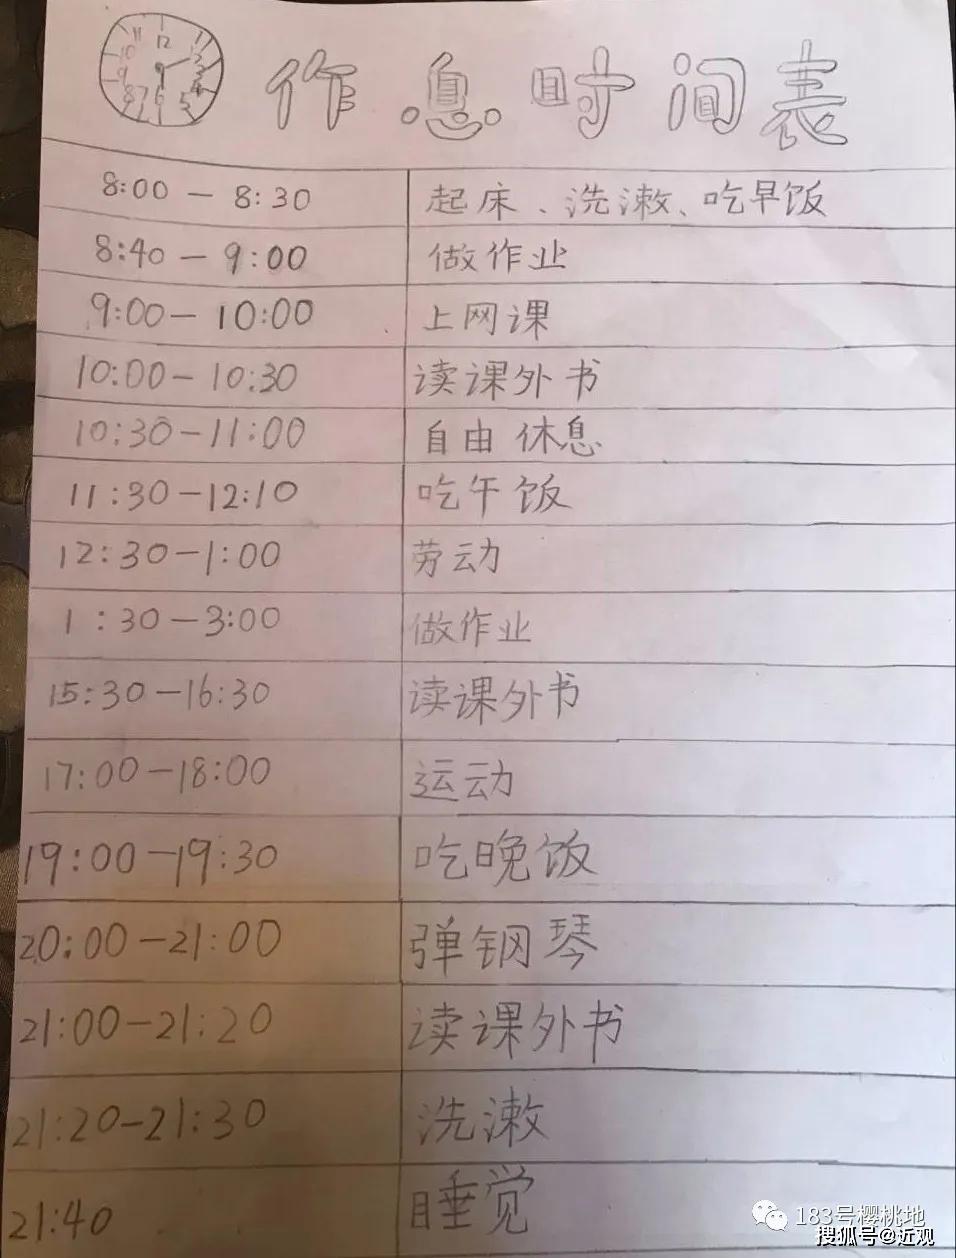 12
11
1
10
2
9
3
8
4
7
6
5
作息时间表
8:00 — 8:30 起床、洗漱、吃早饭
8:40 — 9:00 做作业
9:00 — 10:00 上网课
10:00 — 10:30 读课外书
10:30 — 11:00 自由休息
11:30 — 12:10 吃午饭
12:30 — 1:00 劳动
1:30 — 3:00 做作业
15:30 — 16:30 读课外书
17:00 — 18:00 运动
19:00 — 19:30 吃晚饭
20:00 — 21:00 弹钢琴
21:00 — 21:20 读课外书
21:20 — 21:30 洗漱
21:40 睡觉
183号樱桃地
搜狐号@近观